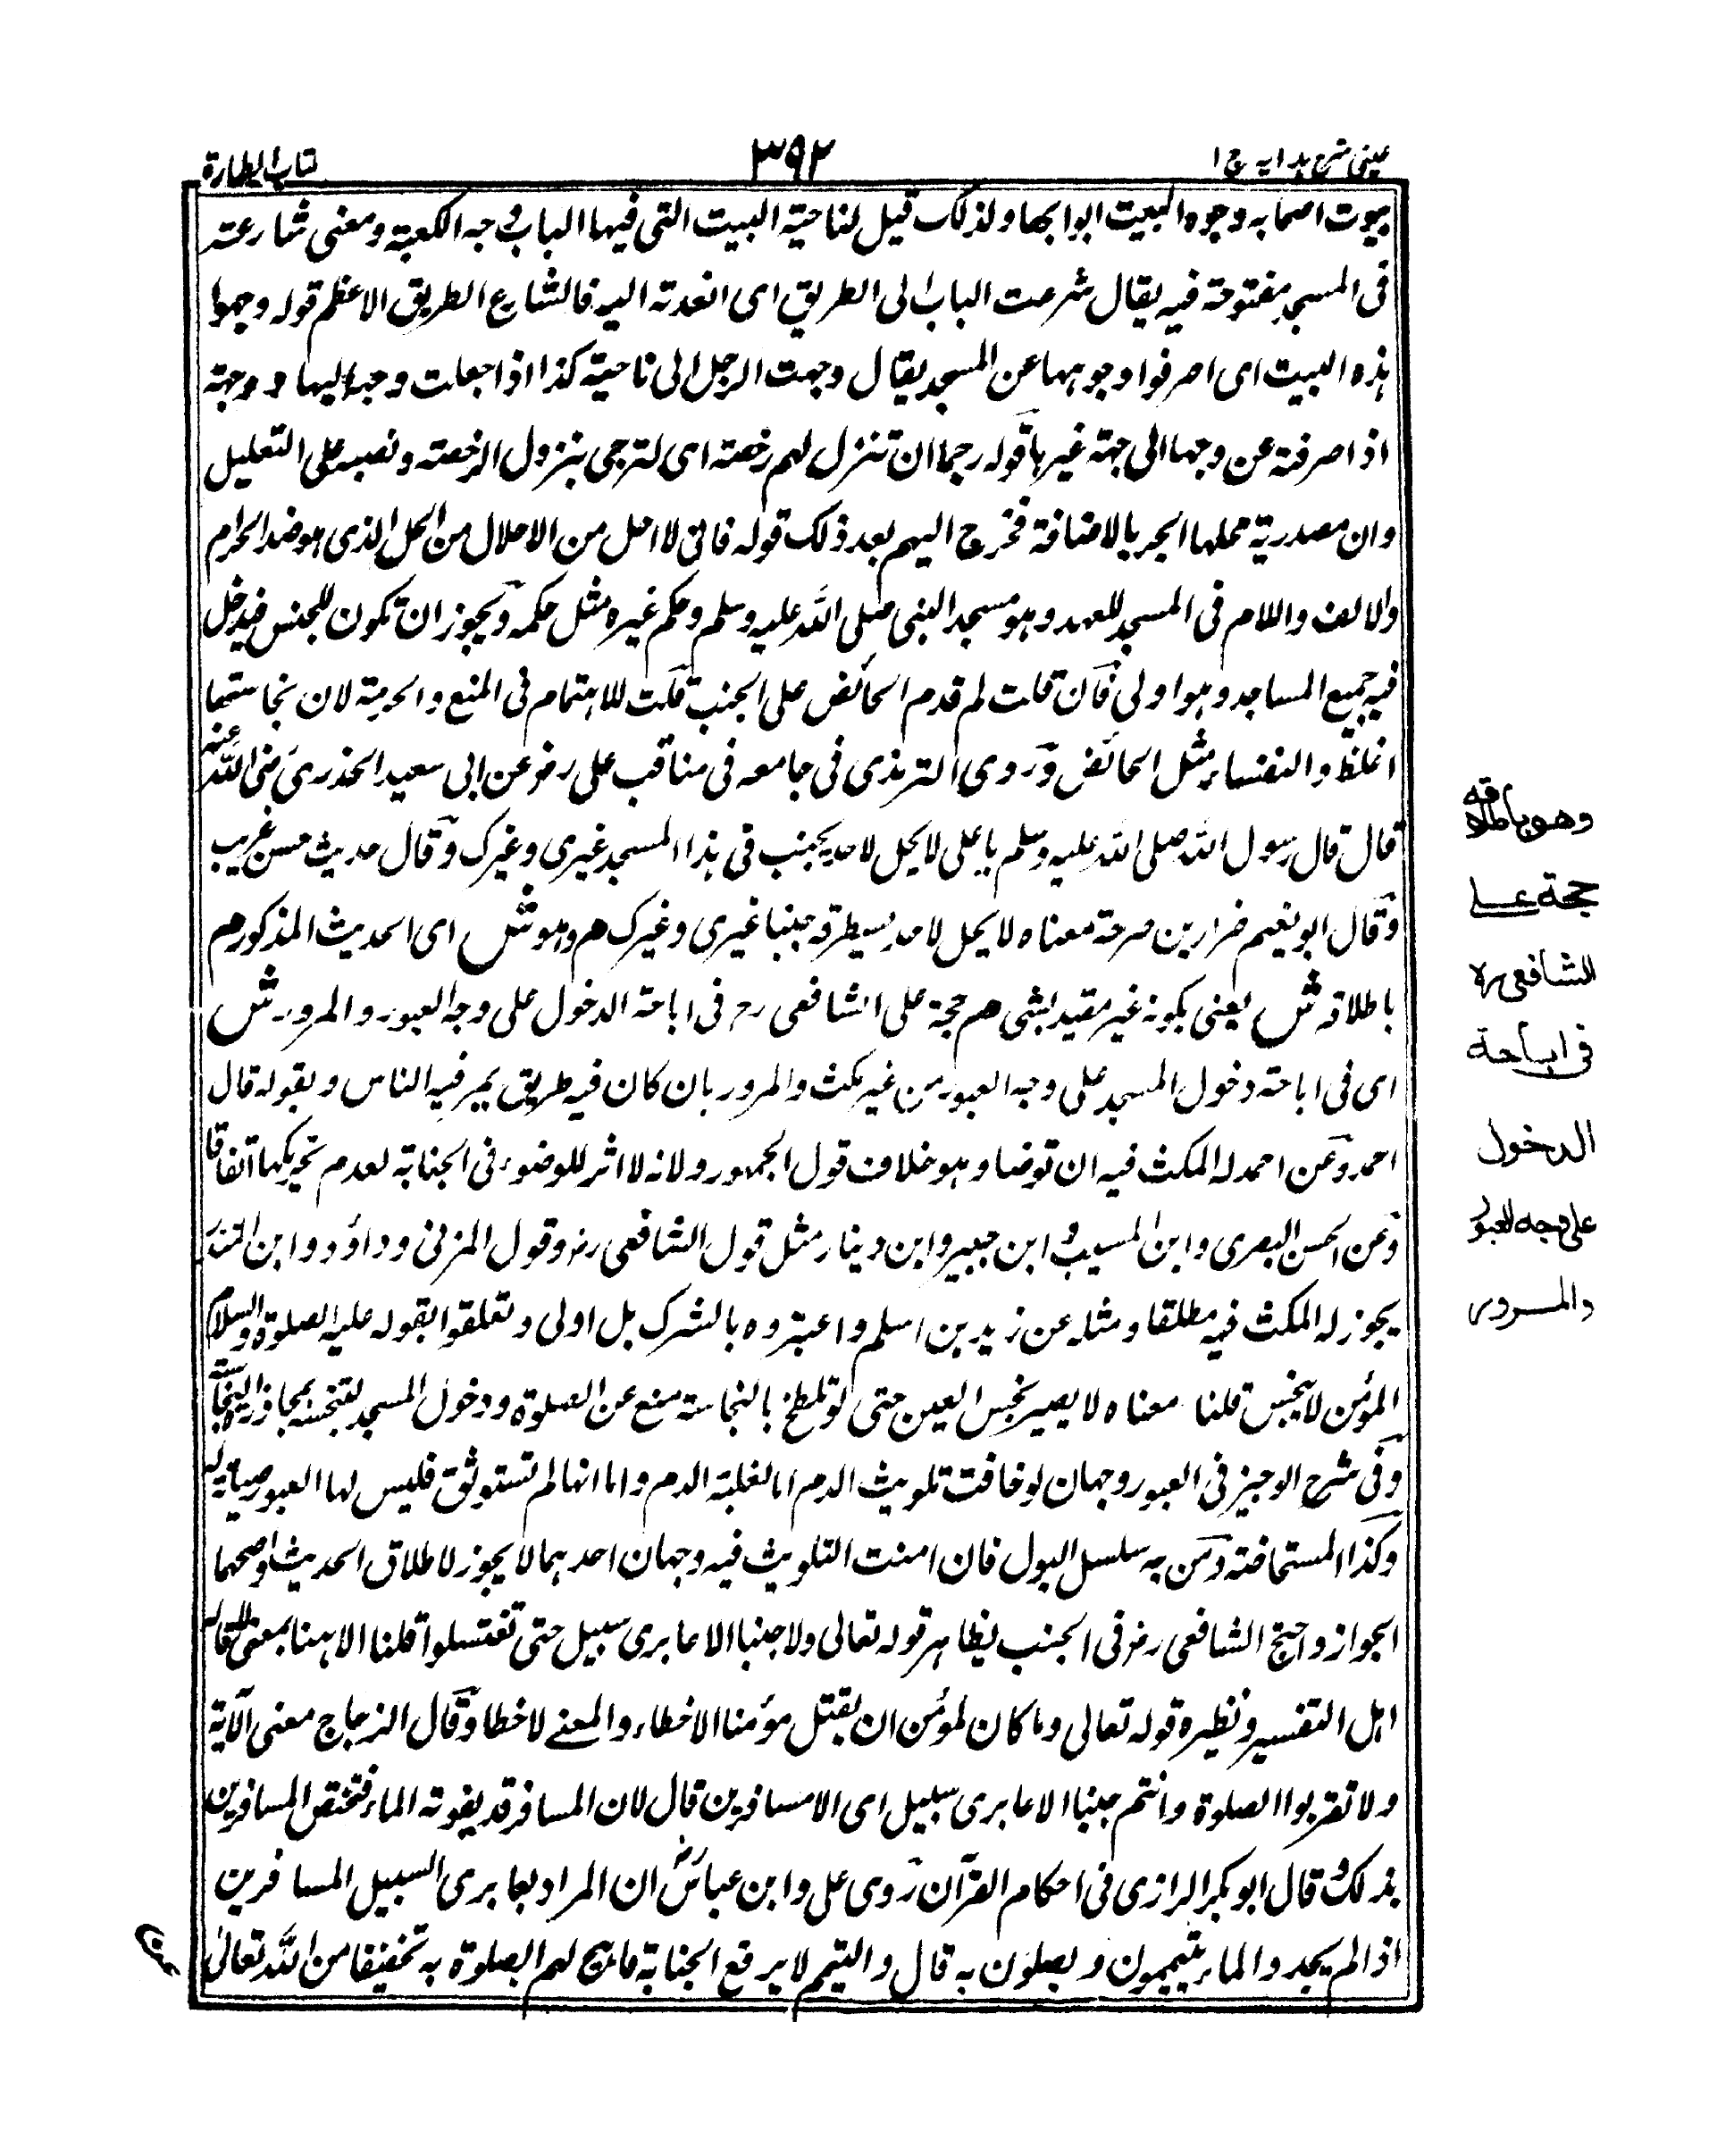 عینی شرح ہدایہ ج ۱
۳۹۲
کتاب الطہارة
بیوت اصحابہ وجوہ البیت ابوابھا ولذلک قیل لناحیة البیت التی فیھا الباب وجہ الکعبة ومعنی شارعتہ
فی المسجد مفتوحة فیہ یقال شرعت الباب الی الطریق ای انفذتہ الیہ فالشارع الطریق الاعظم قولہ وجھوا
ہذہ البیت ای اصرفوا وجوہہا عن المسجد یقال وجہت الرجل الی ناحیة کذا اذا جعلت وجہہ الیہا و وجہتہ
اذا صرفتہ عن وجہھا الی جہة غیرہا قولہ رجاء ان تنزل لہم رخصتہ ای لترجی بنزول الرخصتہ ونصبہ علی التعلیل
وان مصدریة محلہا الجر بالاضافة فخرج الیہم بعد ذلک قولہ فانی لا احل من الاحلال من الحل الذی ہو ضد الحرام
والالف واللام فی المسجد للعہد وہو مسجد النبی صلی اللہ علیہ وسلم وحکم غیرہ مثل حکمہ ویجوز ان تکون للجنس فیدخل
فیہ جمیع المساجد وہو اولی فان قلت لم قدم الحائض علی الجنب قلت للاہتمام فی المنع والحرمة لان نجاستہا
اغلظ والنفساء مثل الحائض وروی الترمذی فی جامعہ فی مناقب علی رض عن ابی سعید الخدری رضی اللہ عنہ
قال قال رسول اللہ صلی اللہ علیہ وسلم یا علی لا یحل لاحد یجنب فی ہذا المسجد غیری وغیرک وقال حدیث حسن غریب
وقال ابو نعیم ضرار بن صرحة معناہ لا یحل لاحد یستطرقہ جنبا غیری وغیرک ھم وہو ش ای الحدیث المذکور ھم
باطلاقہ ش یعنی بکونہ غیر مقید بشی ھم حجة علی الشافعی رہ فی اباحة الدخول علی وجہ العبور والمرور ش
ای فی اباحتہ دخول المسجد علی وجہ العبور من غیر مکث والمرور بان کان فیہ طریق یمر فیہ الناس وبقولہ قال
احمد وعن احمد لہ المکث فیہ ان توضا وہو خلاف قول الجمہور ولانہ لا اثر للوضوء فی الجنابة لعدم تحریکہا اتفاقا
وعن الحسن البصری وابن المسیب وابن جبیر وابن دینار مثل قول الشافعی رہ وقول المزنی وداؤد وابن المنذر
یجوز لہ المکث فیہ مطلقا ومثلہ عن زید بن اسلم واعتبروہ بالمشرک بل اولی وتعلقوا بقولہ علیہ الصلوة والسلام
المؤمن لا ینجس قلنا معناہ لا یصیر نجس العین حتی لو تلطخ بالنجاستہ منع عن الصلوة ودخول المسجد لتنجسہ بمجاورة النجاستہ
وفی شرح الوجیز فی العبور وجہان لو خافت تلویث الدم اما لغلبة الدم واما انہا لم تستوثق فلیس لہا العبور صیانة لہ
وکذا المستحاضتہ ومن بہ سلسل البول فان امنت التلویث فیہ وجہان احدہما لا یجوز لاطلاق الحدیث واصحہا
الجواز واحتج الشافعی رض فی الجنب بظاہر قولہ تعالی ولا جنبا الا عابری سبیل حتی تغتسلوا قلنا الا ہنا بمعنی لا قالہ
اہل التفسیر ونظیرہ قولہ تعالی وما کان لمؤمن ان یقتل مؤمنا الا خطاء والمعنے لا خطا وقال الزجاج معنی الآیة
ولا تقربوا الصلوة وانتم جنبا الا عابری سبیل ای الا مسافرین قال لان المسافر قد یفوتہ الماء فتختص المسافرین
بذلک وقال ابو بکر الرازی فی احکام القرآن روی علی وابن عباس رض ان المراد بعابری السبیل المسافرین
اذا لم یجدوا الماء یتیممون ویصلون بہ قال والتیمم لا یرفع الجنابة فابیح لہم الصلوة بہ تخفیفا من اللہ تعالی
وھو باطلاقہ
حجة علی
الشافعی رہ
فی اباحة
الدخول
علی وجہ العبور
والمرور